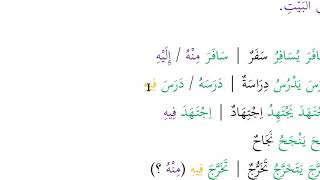 البَيْتِ.
يُسَافِرُ سَفَرٌ | سَافَرَ مِنْهُ / إِلَيْهِ
يَدْرُسُ دِرَاسَةٌ | دَرَسَهُ / دَرَسَ فِيهِ
يَجْتَهِدُ اِجْتِهَادٌ | اِجْتَهَدَ فِيهِ
يَنْجَحُ نَجَاحٌ
يَتَخَرَّجُ تَخَرُّجٌ | تَخَرَّجَ فِيهِ (مِنْهُ ؟)